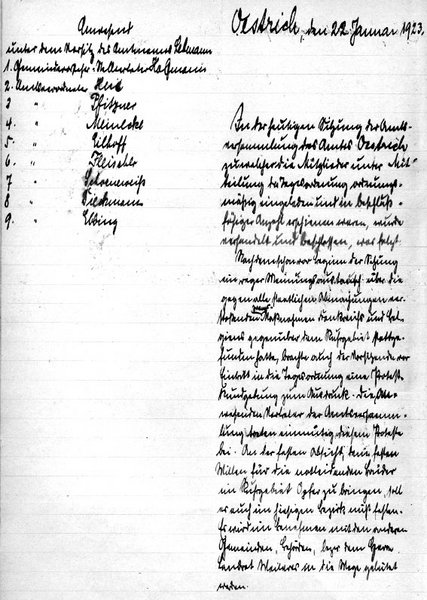 Oestrich, den 22. Januar 1923.
Anwesend
unter dem Vorsitz des Amtmanns
1. Gemeindevorsteher
2. Amtsverordneter
3 " Pfitzner
4. " Meinckel
5. " Eilhoff
6. " Fleischer
7 " Schreneweiß
8 " Dieckmann
9. " Ebbing
In der heutigen Sitzung der Amts-
versammlung des Amtes Oestrich
zu welcher die Mitglieder unter Mit-
teilung der Tagesordnung ordnungs-
mäßig eingeladen und in beschluß-
fähiger Anzahl erschienen waren, wurde
verhandelt und beschlossen, was folgt
Nachdem schon vor Beginn der Sitzung
ein reger Meinungsaustausch über die
gegen alle staatlichen Abmachungen ver-
stoßenden Maßnahmen Frankreichs und Bel-
giens gegenüber dem Ruhrgebiet stattge-
funden hatte, brachte auch der Vorsitzende vor
Eintritt in die Tagesordnung eine Protest-
kundgebung zum Ausdruck. Die An-
wesenden Vertreter der Amtsversamm-
lung traten einmütig diesem Proteste
bei. An der festen Absicht, dem festen
Willen für die notleidenden Brüder
im Ruhrgebiet Opfer zu bringen, soll
er auch im hiesigen Bezirk nicht fehlen.
Es wird im Benehmen mit den anderen
Gemeinden, Behörden, bezw. dem Herrn
Landrat Weiteres in die Wege geleitet
werden.